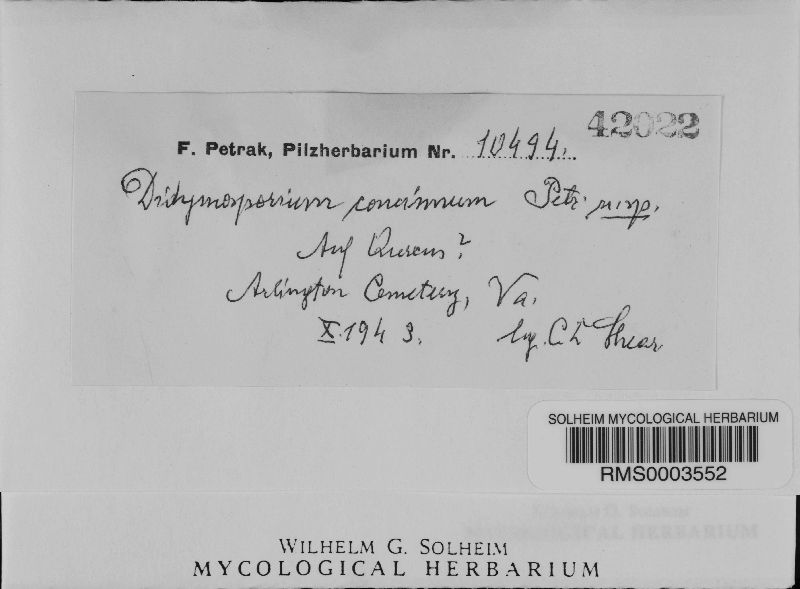 42022
F. Petrak, Pilzherbarium Nr. 10494.
Didymosporium concinnum Petr. n. sp.
Auf Quercus?
Arlington Cemetery, Va.
X. 1943. lg. C. L. Shear
SOLHEIM MYCOLOGICAL HERBARIUM
RMS0003552
WILHELM G. SOLHEIM
MYCOLOGICAL HERBARIUM